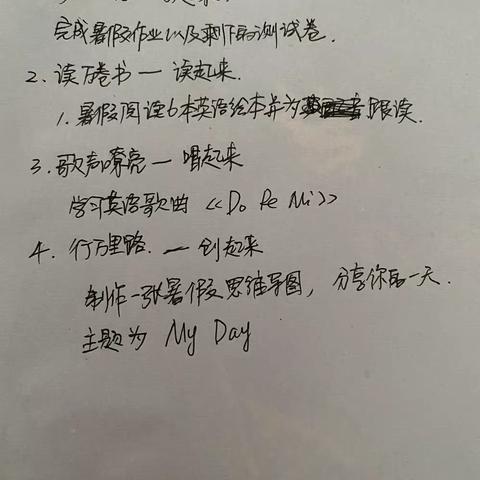 完成暑假作业以及剩下的测试卷.
2. 读万卷书 — 读起来.
1. 暑假阅读6本英语绘本并为跟读.
3. 歌声嘹亮 — 唱起来
学习英语歌曲 《Do Re Mi》
4. 行万里路. — 创起来
制作一张暑假思维导图, 分享你的一天.
主题为 My Day